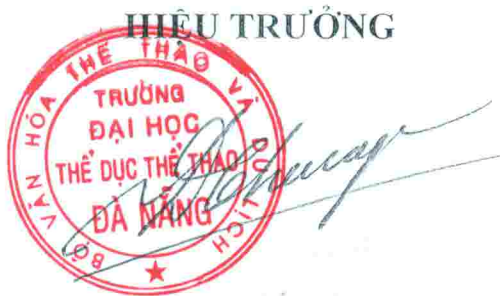 HIỆU TRƯỞNG
BỘ VĂN HÓA THỂ THAO VÀ DU LỊCH
TRƯỜNG
ĐẠI HỌC
THỂ DỤC THỂ THAO
ĐÀ NẴNG